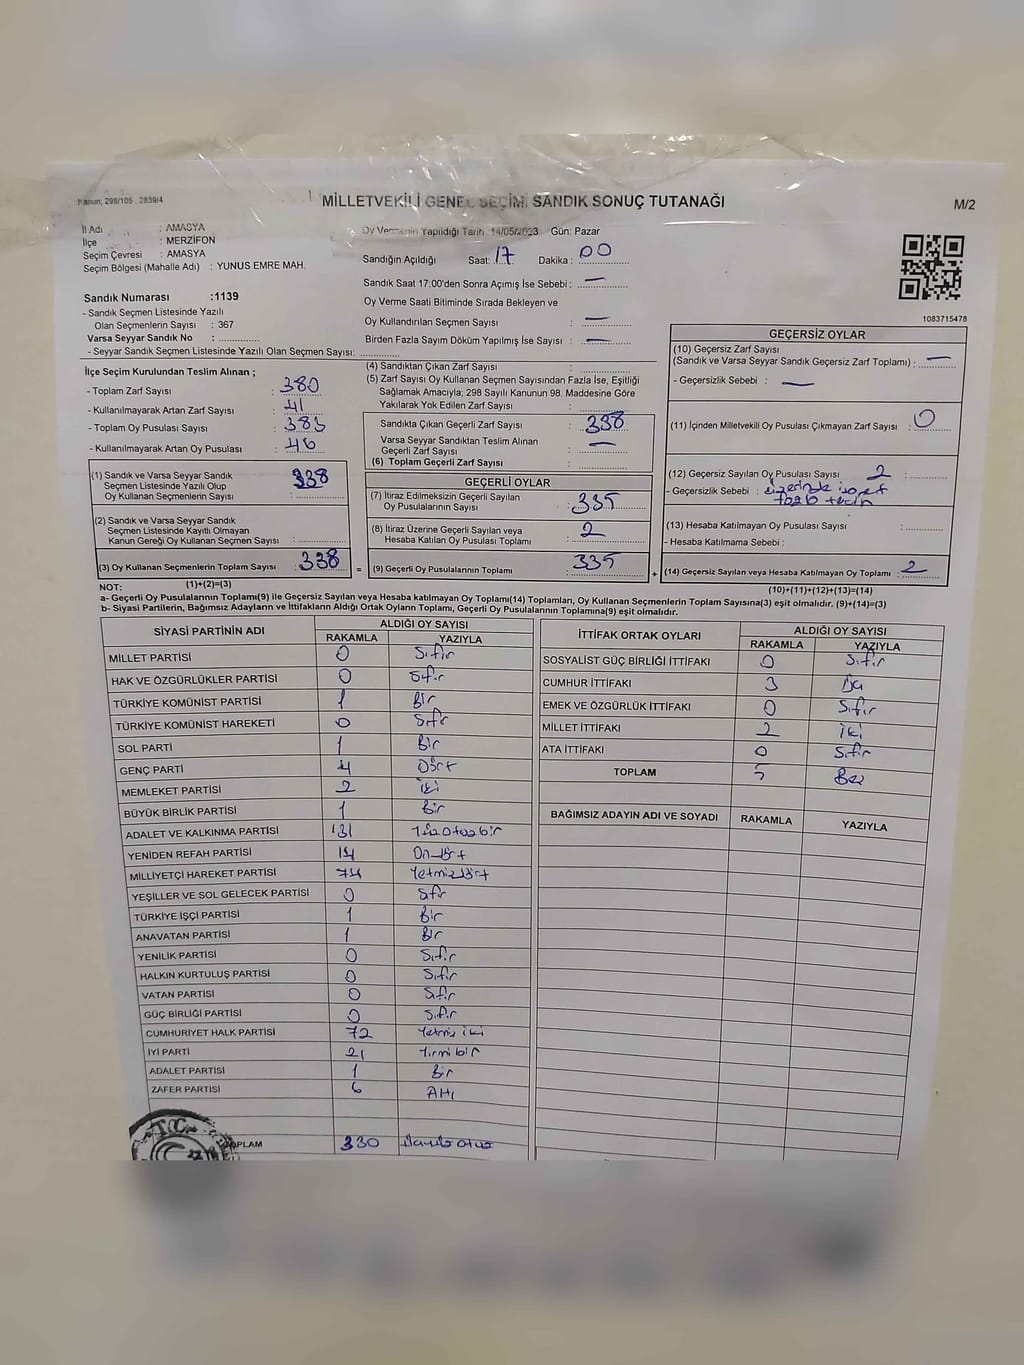 Kanun; 298/105 , 2839/4
MİLLETVEKİLİ GENEL SEÇİMİ SANDIK SONUÇ TUTANAĞI
M/2
İl Adı : AMASYA
İlçe : MERZİFON
Seçim Çevresi : AMASYA
Seçim Bölgesi (Mahalle Adı) : YUNUS EMRE MAH.
Oy Vermenin Yapıldığı Tarih 14/05/2023 Gün: Pazar
Sandığın Açıldığı Saat: 17 Dakika : 00
Sandık Saat 17:00'den Sonra Açımış İse Sebebi : —
Oy Verme Saati Bitiminde Sırada Bekleyen ve
Oy Kullandırılan Seçmen Sayısı : —
Birden Fazla Sayım Döküm Yapılmış İse Sayısı : —
1083715478
Sandık Numarası :1139
- Sandık Seçmen Listesinde Yazılı
Olan Seçmenlerin Sayısı : 367
Varsa Seyyar Sandık No :
- Seyyar Sandık Seçmen Listesinde Yazılı Olan Seçmen Sayısı:
İlçe Seçim Kurulundan Teslim Alınan ;
- Toplam Zarf Sayısı : 380
- Kullanılmayarak Artan Zarf Sayısı : 41
- Toplam Oy Pusulası Sayısı :
- Kullanılmayarak Artan Oy Pusulası : 46
(1) Sandık ve Varsa Seyyar Sandık
Seçmen Listesinde Yazılı Olup
Oy Kullanan Seçmenlerin Sayısı : 338
(2) Sandık ve Varsa Seyyar Sandık
Seçmen Listesinde Kayıtlı Olmayan
Kanun Gereği Oy Kullanan Seçmen Sayısı :
(3) Oy Kullanan Seçmenlerin Toplam Sayısı : 338
(1)+(2)=(3)
(4) Sandıktan Çıkan Zarf Sayısı :
(5) Zarf Sayısı Oy Kullanan Seçmen Sayısından Fazla İse, Eşitliği
Sağlamak Amacıyla; 298 Sayılı Kanunun 98. Maddesine Göre
Yakılarak Yok Edilen Zarf Sayısı :
Sandıkta Çıkan Geçerli Zarf Sayısı : 338
Varsa Seyyar Sandıktan Teslim Alınan
Geçerli Zarf Sayısı : —
(6) Toplam Geçerli Zarf Sayısı :
GEÇERLİ OYLAR
(7) İtiraz Edilmeksizin Geçerli Sayılan
Oy Pusulalarının Sayısı : 335
(8) İtiraz Üzerine Geçerli Sayılan veya
Hesaba Katılan Oy Pusulası Toplamı : 2
= (9) Geçerli Oy Pusulalarının Toplamı : 335
GEÇERSİZ OYLAR
(10) Geçersiz Zarf Sayısı
(Sandık ve Varsa Seyyar Sandık Geçersiz Zarf Toplamı) : —
- Geçersizlik Sebebi : —
(11) İçinden Milletvekili Oy Pusulası Çıkmayan Zarf Sayısı : 0
(12) Geçersiz Sayılan Oy Pusulası Sayısı : 2
- Geçersizlik Sebebi : üzerinde işaret
(13) Hesaba Katılmayan Oy Pusulası Sayısı :
- Hesaba Katılmama Sebebi :
+ (14) Geçersiz Sayılan veya Hesaba Katılmayan Oy Toplamı : 2
(10)+(11)+(12)+(13)=(14)
NOT:
a- Geçerli Oy Pusulalarının Toplamı(9) ile Geçersiz Sayılan veya Hesaba katılmayan Oy Toplamı(14) Toplamları, Oy Kullanan Seçmenlerin Toplam Sayısına(3) eşit olmalıdır. (9)+(14)=(3)
b- Siyasi Partilerin, Bağımsız Adayların ve İttifakların Aldığı Ortak Oyların Toplamı, Geçerli Oy Pusulalarının Toplamına(9) eşit olmalıdır.
SİYASİ PARTİNİN ADI
ALDIĞI OY SAYISI
RAKAMLA YAZIYLA
MİLLET PARTİSİ 0 Sıfır
HAK VE ÖZGÜRLÜKLER PARTİSİ 0 Sıfır
TÜRKİYE KOMÜNİST PARTİSİ 1 Bir
TÜRKİYE KOMÜNİST HAREKETİ 0 Sıfır
SOL PARTİ 1 Bir
GENÇ PARTİ 4 Dört
MEMLEKET PARTİSİ 2 iki
BÜYÜK BİRLİK PARTİSİ 1 Bir
ADALET VE KALKINMA PARTİSİ 131 Yüzotuzbir
YENİDEN REFAH PARTİSİ 14 Ondört
MİLLİYETÇİ HAREKET PARTİSİ 74 Yetmişdört
YEŞİLLER VE SOL GELECEK PARTİSİ 0 Sıfır
TÜRKİYE İŞÇİ PARTİSİ 1 Bir
ANAVATAN PARTİSİ 1 Bir
YENİLİK PARTİSİ 0 Sıfır
HALKIN KURTULUŞ PARTİSİ 0 Sıfır
VATAN PARTİSİ 0 Sıfır
GÜÇ BİRLİĞİ PARTİSİ 0 Sıfır
CUMHURİYET HALK PARTİSİ 72 Yetmiş iki
İYİ PARTİ 21 Yirmi bir
ADALET PARTİSİ 1 Bir
ZAFER PARTİSİ 6 Altı
TOPLAM 330 Üçyüz otuz
T.C.
İTTİFAK ORTAK OYLARI
ALDIĞI OY SAYISI
RAKAMLA YAZIYLA
SOSYALİST GÜÇ BİRLİĞİ İTTİFAKI 0 Sıfır
CUMHUR İTTİFAKI 3 Üç
EMEK VE ÖZGÜRLÜK İTTİFAKI 0 Sıfır
MİLLET İTTİFAKI 2 iki
ATA İTTİFAKI 0 Sıfır
TOPLAM 5 Beş
BAĞIMSIZ ADAYIN ADI VE SOYADI RAKAMLA YAZIYLA